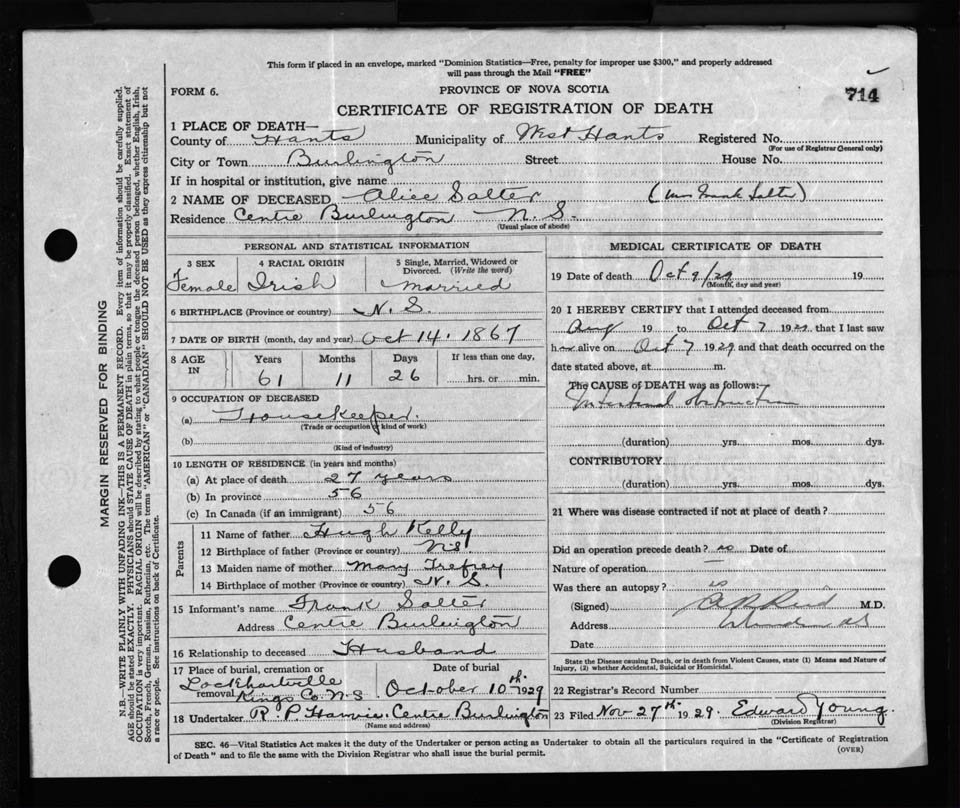 This form if placed in an envelope, marked "Dominion Statistics—Free, penalty for improper use $300," and properly addressed
will pass through the Mail "FREE"
FORM 6.
PROVINCE OF NOVA SCOTIA
714
CERTIFICATE OF REGISTRATION OF DEATH
1 PLACE OF DEATH—
County of Hants Municipality of West Hants Registered No.
(For use of Registrar General only)
City or Town Burlington Street House No.
If in hospital or institution, give name
2 NAME OF DECEASED Alice Salter (Mrs Frank Salter)
Residence Centre Burlington N.S.
(Usual place of abode)
PERSONAL AND STATISTICAL INFORMATION
3 SEX 4 RACIAL ORIGIN 5 Single, Married, Widowed or
Divorced. (Write the word)
Female Irish Married
6 BIRTHPLACE (Province or country) N.S.
7 DATE OF BIRTH (month, day and year) Oct 14. 1867
8 AGE IN Years Months Days If less than one day,
61 11 26 hrs. or min.
9 OCCUPATION OF DECEASED
(a) Housekeeper.
(Trade or occupation or kind of work)
(b)
(Kind of industry)
10 LENGTH OF RESIDENCE (in years and months)
(a) At place of death 27 years
(b) In province 56
(c) In Canada (if an immigrant) 56
Parents
11 Name of father Hugh Kelly
12 Birthplace of father (Province or country) N.S.
13 Maiden name of mother Mary Trefrey
14 Birthplace of mother (Province or country) N.S.
15 Informant's name Frank Salter
Address Centre Burlington
16 Relationship to deceased Husband
17 Place of burial, cremation or removal Date of burial
Lockhartville
Kings Co. N-S October 10th 1929
18 Undertaker R. P. Harvie. Centre Burlington
(Name and address)
MEDICAL CERTIFICATE OF DEATH
19 Date of death Oct 9/29 19
(Month, day and year)
20 I HEREBY CERTIFY that I attended deceased from
Aug 19 to Oct 7 1929, that I last saw
her alive on Oct 7 1929 and that death occurred on the
date stated above, at m.
The CAUSE OF DEATH was as follows:
Intestinal obstruction
(duration) yrs. mos. dys.
CONTRIBUTORY
(duration) yrs. mos. dys.
21 Where was disease contracted if not at place of death?
Did an operation precede death? no Date of
Nature of operation —
Was there an autopsy?
(Signed) Reid M.D.
Address
Date
State the Disease causing Death, or in death from Violent Causes, state (1) Means and Nature of
Injury, (2) whether Accidental, Suicidal or Homicidal.
22 Registrar's Record Number
23 Filed Nov 27th 1929. Edward Young.
(Division Registrar)
SEC. 46—Vital Statistics Act makes it the duty of the Undertaker or person acting as Undertaker to obtain all the particulars required in the "Certificate of Registration
of Death" and to file the same with the Division Registrar who shall issue the burial permit.
(OVER)
MARGIN RESERVED FOR BINDING
N.B.—WRITE PLAINLY WITH UNFADING INK—THIS IS A PERMANENT RECORD. Every item of information should be carefully supplied.
AGE should be stated EXACTLY. PHYSICIANS should STATE CAUSE OF DEATH in plain terms, so that it may be properly classified. Exact statement of
OCCUPATION is very important. RACIAL ORIGIN will be described by stating to what people or tongue the deceased person belonged, whether English, Irish,
Scotch, French, German, Russian, Ruthenian, etc. The terms "AMERICAN" or "CANADIAN" SHOULD NOT BE USED as they express citizenship but not
a race or people. See instructions on back of Certificate.